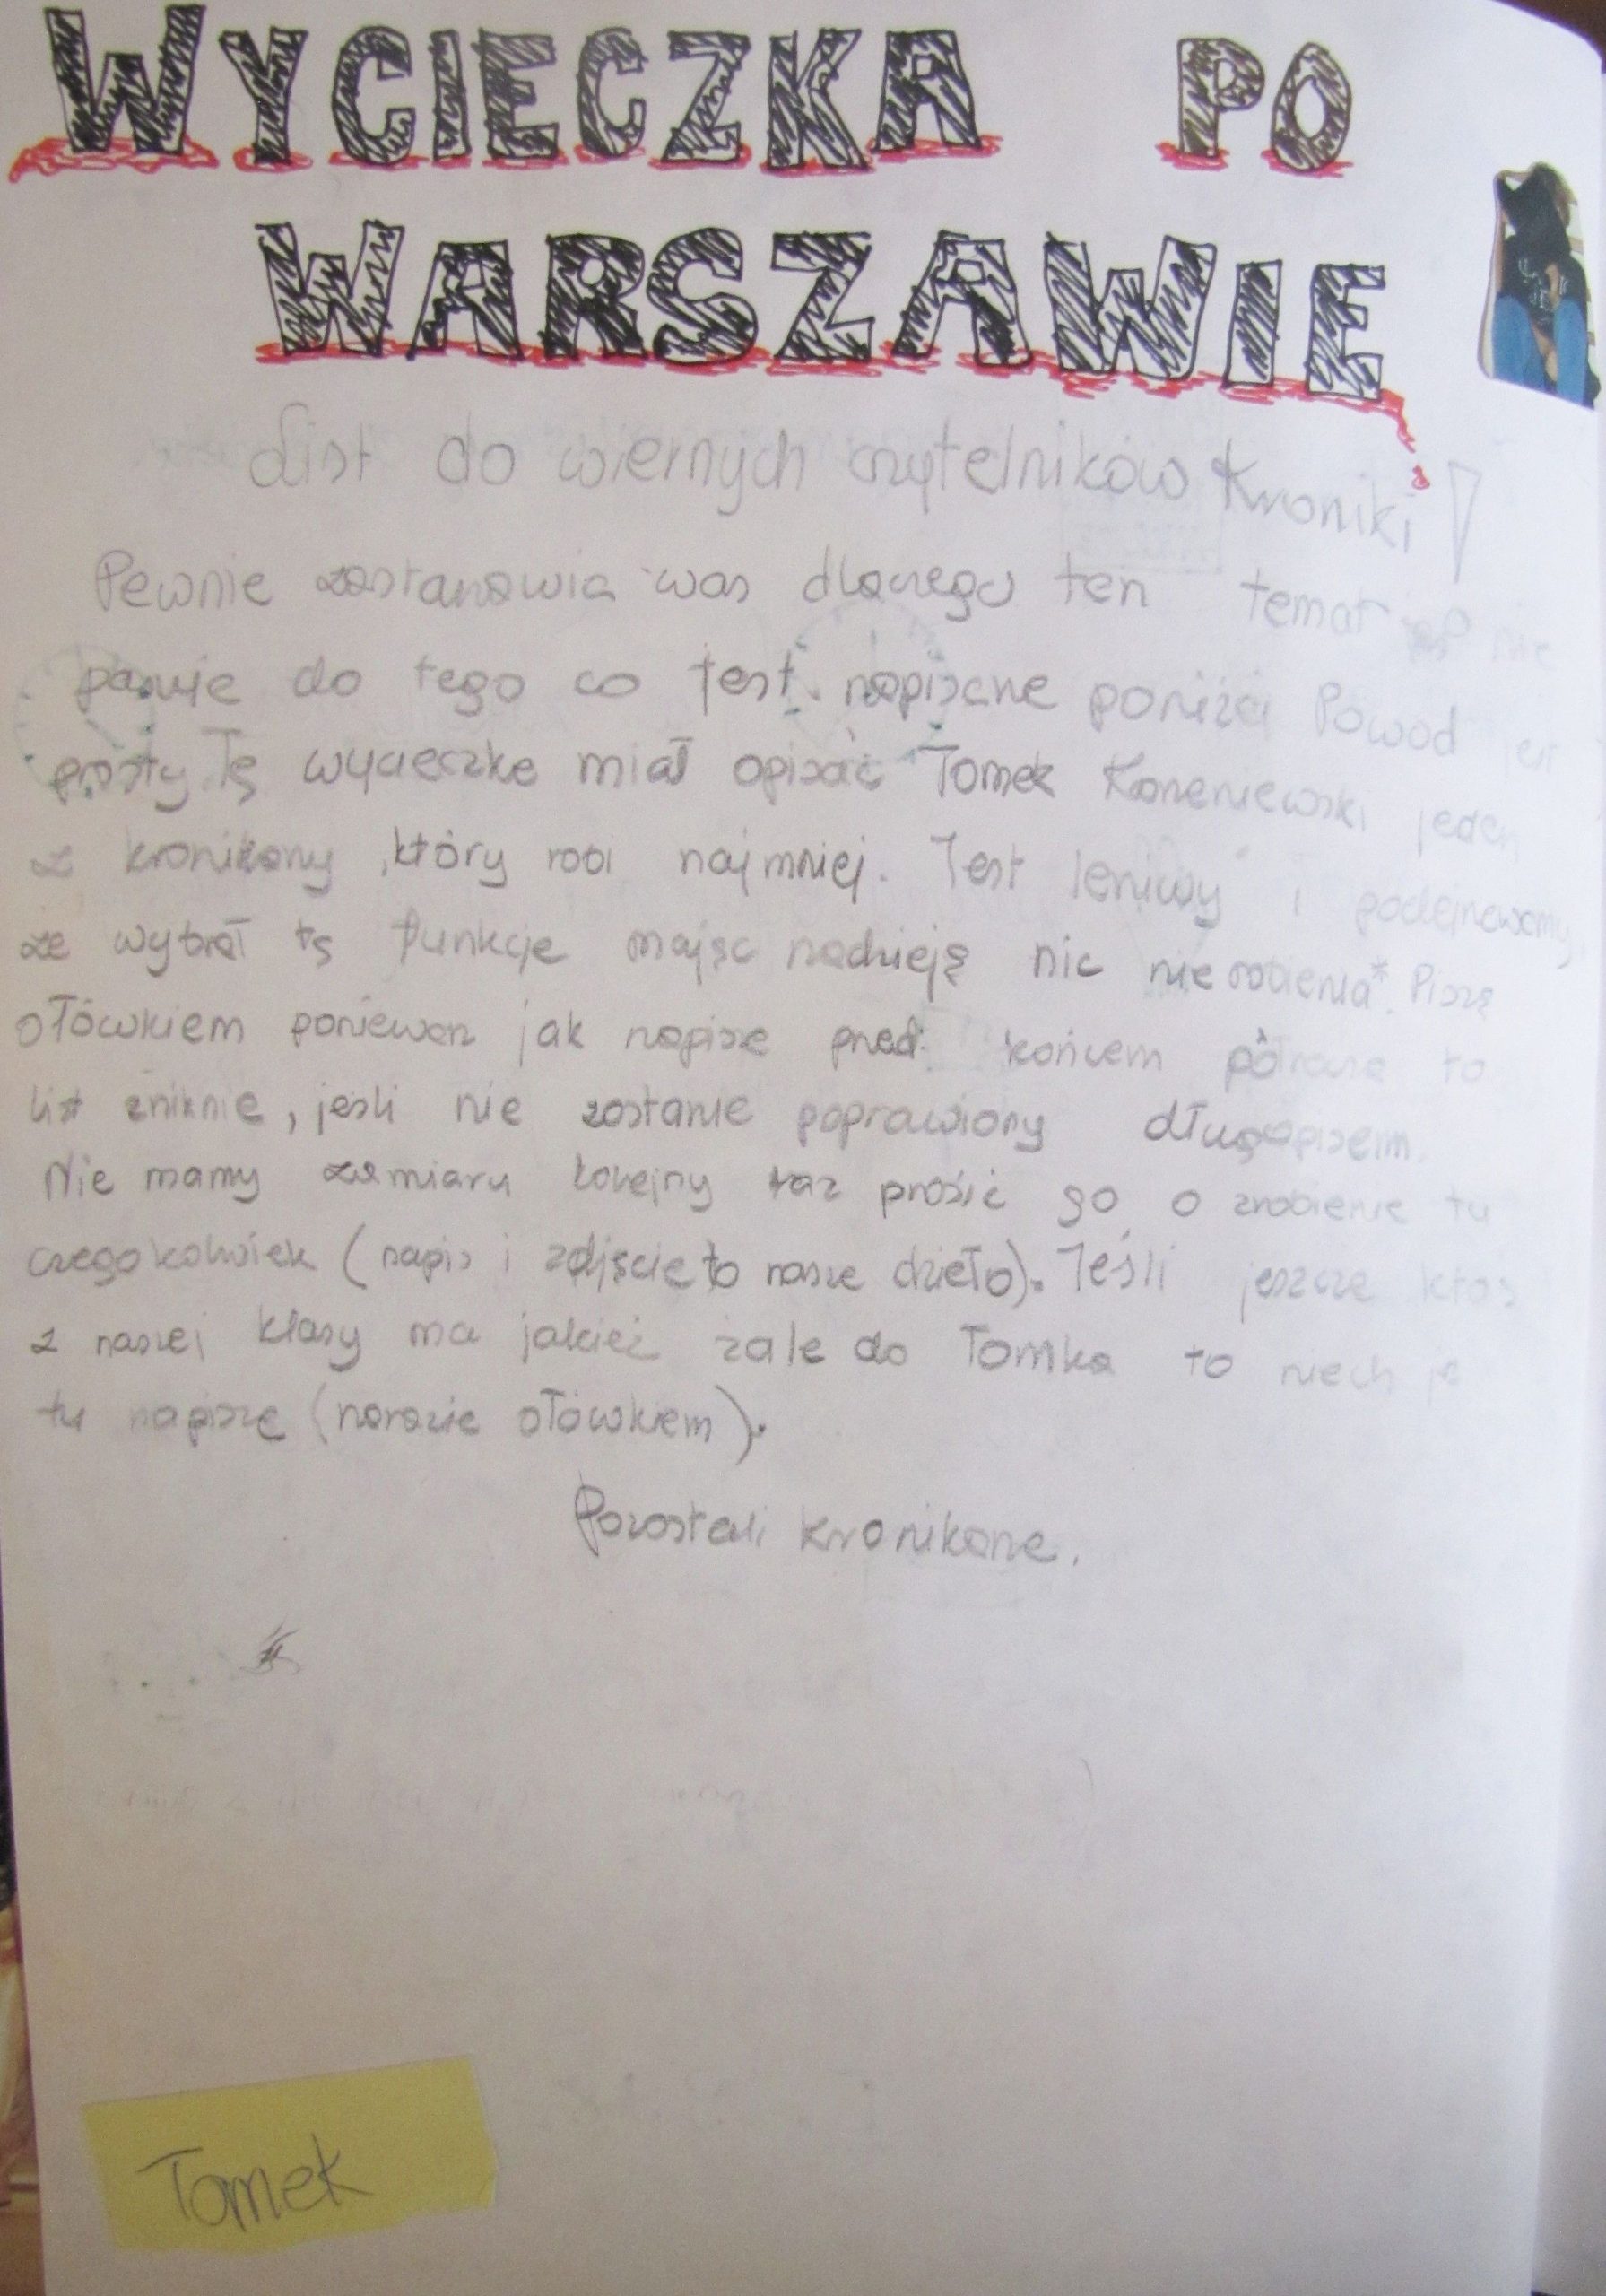 WYCIECZKA PO
WARSZAWIE
List do wiernych czytelników kroniki!
Pewnie zastanawia was dlaczego ten temat nie
pasuje do tego co jest napisane poniżej Powód jest
prosty Tę wycieczkę miał opisać Tomek jeden
z kronikarzy, który robi najmniej. Jest leniwy i podejrzewamy,
że wybrał tę funkcje mając nadzieję nic nie robienia*. Piszę
ołówkiem ponieważ jak napisze przed końcem półrocza to
list zniknie, jeśli nie zostanie poprawiony długopisem.
Nie mamy zamiaru kolejny raz prosić go o zrobienie tu
czegokolwiek (napis i zdjęcie to nasze dzieło). Jeśli jeszcze ktoś
z naszej klasy ma jakieś żale do Tomka to niech je
tu napisze (narazie ołówkiem).
Pozostali kronikarze.
Tomek